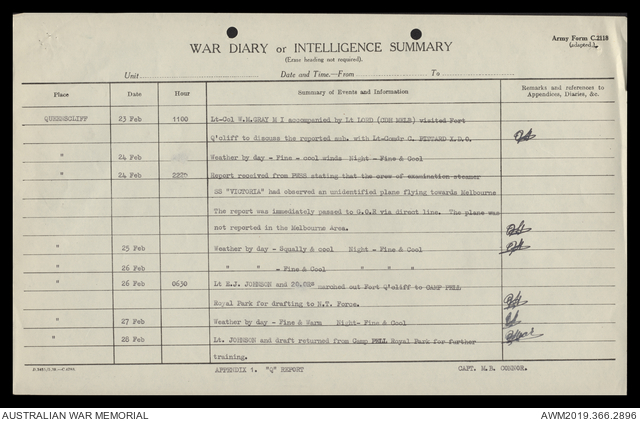 WAR DIARY or INTELLIGENCE SUMMARY
(Erase heading not required).
Army Form C.2118
(adapted).
Unit
Date and Time.—From
To
Place
Date
Hour
Summary of Events and Information
Remarks and references to
Appendices, Diaries, &c.
QUEENSCLIFF 23 Feb 1100 Lt-Col W.M.GRAY M I accompanied by Lt LORD visited Fort
Q'cliff to discuss the reported sub. with Lt-Comdr C.
" 24 Feb Weather by day - Fine - cool winds Night - Fine & Cool
" 24 Feb 2225 Report received from stating that the crew of examination steamer
SS "VICTORIA" had observed an unidentified plane flying towards Melbourne
The report was immediately passed to G.O.R via direct line. The plane was
not reported in the Melbourne Area.
" 25 Feb Weather by day - Squally & cool Night - Fine & Cool
" 26 Feb " " - Fine & Cool " " "
" 26 Feb 0630 Lt E.J. JOHNSON and marched out Fort Q'cliff to CAMP PELL
Royal Park for drafting to N.T. Force.
" 27 Feb Weather by day - Fine & Warm Night- Fine & Cool
" 28 Feb Lt. JOHNSON and draft returned from Camp PELL Royal Park for further
training.
APPENDIX 1. "Q" REPORT
CAPT. M.B. CONNOR.
AUSTRALIAN WAR MEMORIAL
AWM2019.366.2896